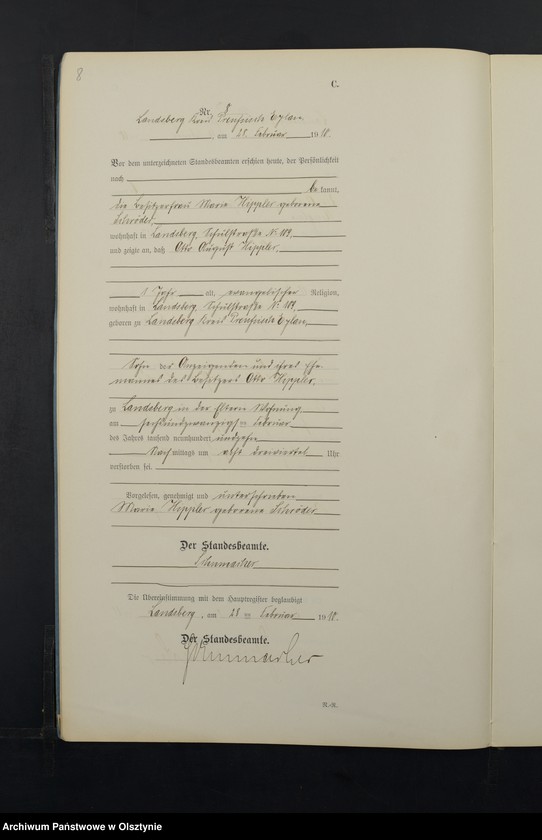 8
C.
Nr. 8
Landsberg Kreis Preußisch Eylau
am 28. Februar 1910.
Vor dem unterzeichneten Standesbeamten erschien heute, der Persönlichkeit
nach
be kannt,
die Besitzerfrau Marie Heppler geborene
Schröder,
wohnhaft in Landsberg Schulstraße Nr. 109,
und zeigte an, daß Otto August Heppler,
1 Jahr alt, evangelischer Religion,
wohnhaft in Landsberg Schulstraße Nr. 109,
geboren zu Landsberg Kreis Preußisch Eylau,
Sohn der Anzeigenden und ihres Ehe-
mannes des Besitzers Otto Heppler,
zu Landsberg in der Eltern Wohnung
am sechsundzwanzigsten Februar
des Jahres tausend neunhundert und zehn
Nach mittags um acht dreiviertel Uhr
verstorben sei.
Vorgelesen, genehmigt und unterschrieben
Marie Heppler geborene Schröder
Der Standesbeamte.
Die Übereinstimmung mit dem Hauptregister beglaubigt
Landsberg, am 28 ten Februar 1910.
Der Standesbeamte.
R.-K.
Archiwum Państwowe w Olsztynie